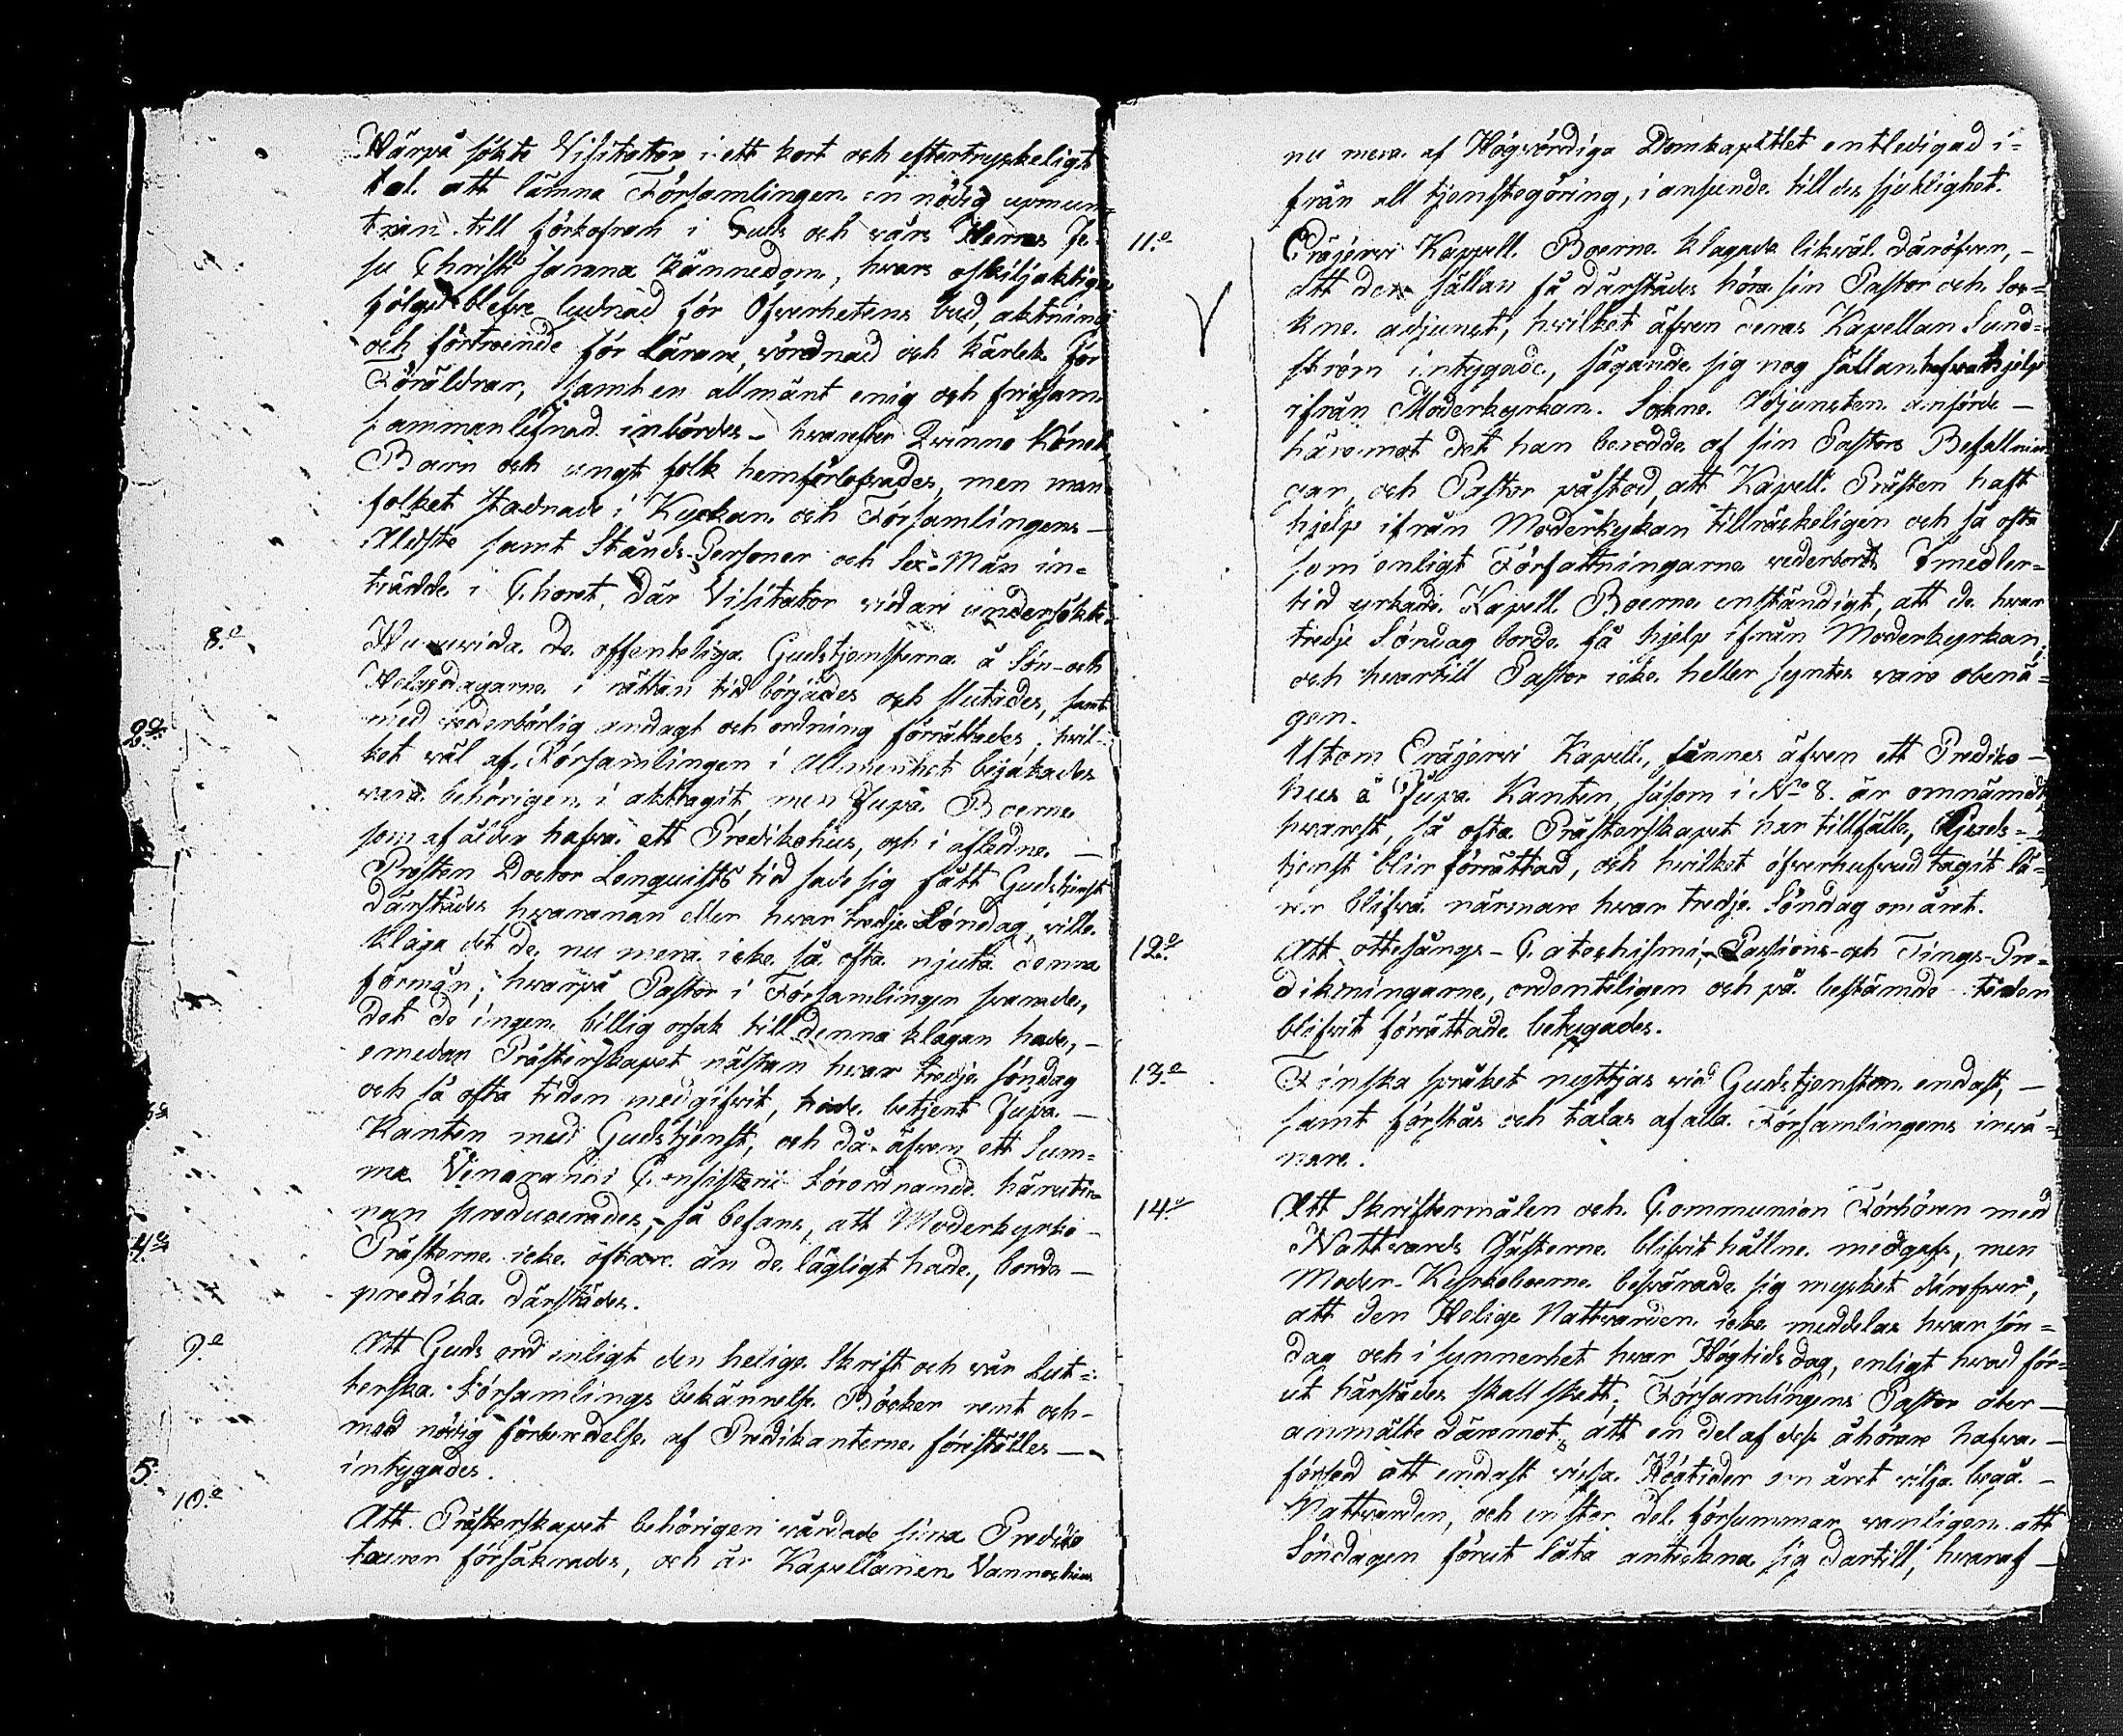 Härpå sökte Visitator i ett kort och eftertryckeligt
tal att lämna Församlingen en nödig upmun-
tran till förkofran i Guds och vårs Herres Je-
su Christi sanna kännedom, hvars oskiljaktige
fölgd blefve lydnad för Öfverhetens bud, aktning
och förtroende för Lärare, vördnad och kärlek för
Föräldrar, samt en allmänt enig och fridsam
sammanlefnad inbördes – hvarefter Qvinno Könet,
Barn och ungt folk hemförlofvades, men man-
folket stadnade i Kyrkan och Församlingens –
Äldste samt Stånds-Personer och Sex-Män in-
trädde i Choret, där Visitator vidare undersökte.
8:o Huruvida de offenteliga Gudstjensterna å Sön- och
Helgedagarne i rättan tid börjades och slutades, samt
2:o med vederbörlig andagt och ordning förrättades, hvil-
ket väl af Församlingen i Allmenhet bejakades
vara behörigen i akttagit, men Jupa Boerne
som af ålder hafva ett Predikohus, och i afledne –
Prosten Doctor Lenquists tid sade sig fått Gudstjenst
därstädes hvarannan eller hvar tredje Söndag, ville
klaga det de nu mera icke så ofta njuta denna
förmån; hvarpå Pastor i Församlingen svarade,
det de ingen billig orsak till denna klagan hade, –
emedan Prästerskapet nästan hvar tredje söndag
och så ofta tiden medgifvit, hade betjent Jupa –
Kanten med Gudstjenst, och då äfven ett Sum-
me Venerandi Consistorii Förordnande härutin-
nan producerades, – så befans, att Moderkyrko –
4:o Prästerne icke oftare än de lägligt hade, borde –
predika därstädes.
9:o Att Guds ord enligt den helige Skrift och vår Lut-
terska Församlings bekännelse Böcker rent och –
med nödig förberedelse af Predikanterne föreställes –
5: intygades.
10:o Att Prästerskapet behörigen vårdade sina Prediko
turer försäkrades, och är Kapellanen Vannochius
nu mera af Högvördiga Domkapitlet entledigad i-
från all tjenstegöring, i anseende till des sjuklighet.
11:o Eräjervi Kapell Boerne klagade likväl däröfver, –
att de sällan få därstädes höra sin Pastor och Soc-
kne adjunct, hvilket äfven deras Kapellan Sund-
ström intygade, sägande sig nog sällan hafva hjelp
ifrån Moderkyrkan. Sockne Adjuncten anförde –
häremot det han berodde af sin Pastors Befallnin-
gar, och Pastor påstod, att Kapell Prästen haft
hjelp ifrån Moderkykan tillräckeligen och så ofta
som enligt Författningarna vederbordt. Imedler-
tid yrkade Kapell Boerne enständigt, att de hvar
tredje Söndag borde få hjelp ifrån Moderkyrkan,
och hvartill Pastor icke heller syntes vara obenä-
gen.
Utom Eräjervi Kapell, finnes äfven ett Prediko –
hus å Jupa Kanten, såsom i N:o 8. är omnämdt,
hvarest, så ofta Prästerskapet har tillfälle, Guds-
tjenst blir förrättad, och hvilket öfverhufvud tagit lä-
rer blifva närmare hvar tredje Söndag om året.
12:o Att ottesångs- Catechismi, Passions- och Tings-Pre-
dikningarne, ordenteligen och på bestämde tiden
blifvit förrättade betygades.
13:o Finska språket nyttjas vid Gudstjensten endast, –
samt förstås och talas af alla Församlingens invå-
nare.
14:o Att Skriftermålen och Communion Förhören med
Nattvards Gästerne blifvit hållne medgafs, men
Moder-Kyrkoboerne besvärade sig mycket däröfver,
att den Helige Nattvarden icke meddelas hvar sön-
dag och i synnerhet hvar Högtidsdag, enligt hvad för-
ut härstädes skall skett. Församlingens Pastor åter –
anmälte däremot, att en del af dess åhörare hafva –
försed att endast vissa Högtider om året vilja begå –
Nattvarden, och en stor del försummar vanligen att
Söndagen förut låta anteckna sig dartill, hvaraf –